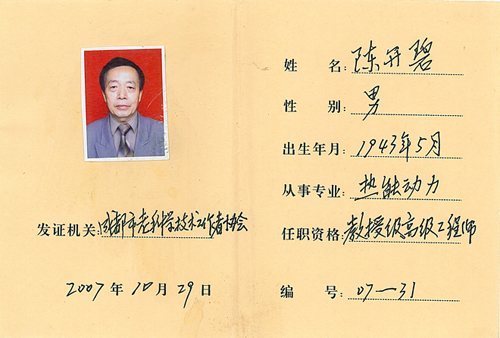 发证机关:成都市老科学技术工作者协会
2007年10月29日
姓名:陈开碧
性别:男
出生年月:1943年5月
从事专业:热能动力
任职资格:教授级高级工程师
编号:07—31